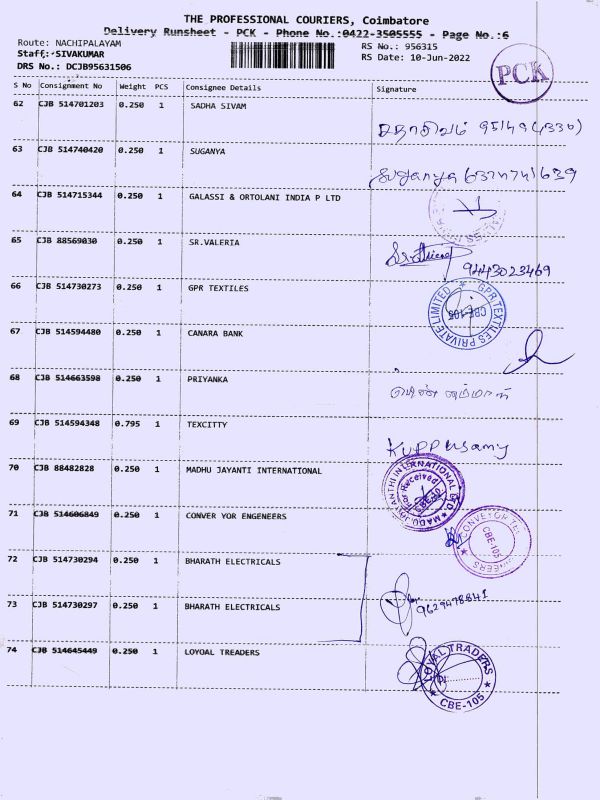 THE PROFESSIONAL COURIERS, Coimbatore
Delivery Runsheet - PCK - Phone No.:0422-3505555 - Page No.:6
Route: NACHIPALAYAM
Staff: SIVAKUMAR
DRS No.: DCJB95631506
RS No.: 956315
RS Date: 10-Jun-2022
PCK
S No Consignment No Weight PCS Consignee Details Signature
62 CJB 514701203 0.250 1 SADHA SIVAM
சதாசிவம்
63 CJB 514740420 0.250 1 SUGANYA
Suganya
64 CJB 514715344 0.250 1 GALASSI & ORTOLANI INDIA P LTD
65 CJB 88569030 0.250 1 SR.VALERIA
9443023469
66 CJB 514730273 0.250 1 GPR TEXTILES
GPR TEXTILES PRIVATE LIMITED
CBE-105
67 CJB 514594480 0.250 1 CANARA BANK
68 CJB 514663598 0.250 1 PRIYANKA
69 CJB 514594348 0.795 1 TEXCITTY
Kuppusamy
70 CJB 88482828 0.250 1 MADHU JAYANTI INTERNATIONAL
71 CJB 514606849 0.250 1 CONVER YOR ENGENEERS
CBE-105
72 CJB 514730294 0.250 1 BHARATH ELECTRICALS
73 CJB 514730297 0.250 1 BHARATH ELECTRICALS
9629478841
74 CJB 514645449 0.250 1 LOYOAL TREADERS
LOYAL TRADERS
CBE-105